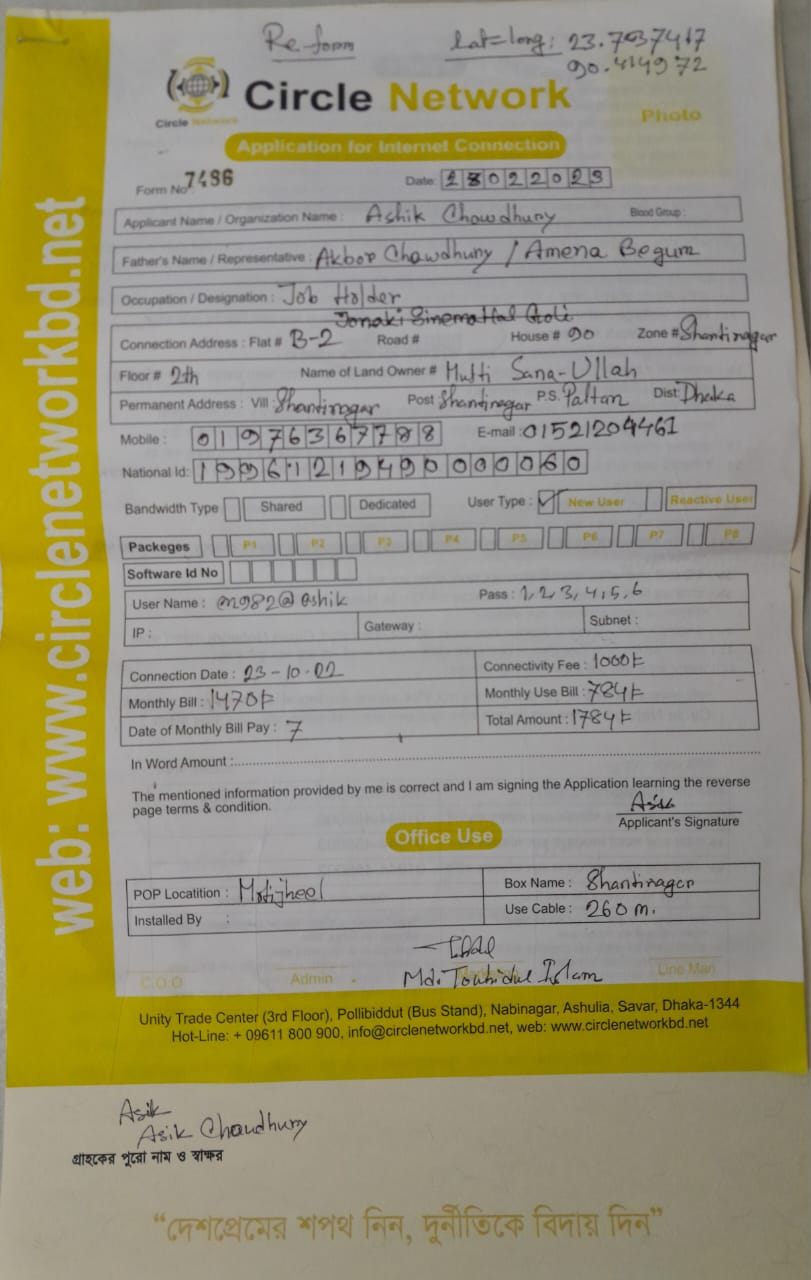 Re-form lat-long: 23.7037417
90.414972
Circle Network
Circle Network
Photo
Application for Internet Connection
Form No 7496 Date: 18022023
Applicant Name / Organization Name : Ashik Chowdhury Blood Group :
Father's Name / Representative : Akbor Chawdhury / Amena Begum
Occupation / Designation : Job Holder
Jonaki Sinema Hal Goli
Connection Address : Flat # B-2 Road # House # 90 Zone # Shantinagar
Floor # 2th Name of Land Owner # Mufti Sana-Ullah
Permanent Address : Vill Shantinagar Post Shantinagar P.S. Paltan Dist: Dhaka
Mobile : 01976367788 E-mail : 01521204461
National Id: 19961219490000060
Bandwidth Type Shared Dedicated User Type : New User Reactive User
Packeges P1 P2 P3 P4 P5 P6 P7 P8
Software Id No
User Name : m982@ashik Pass : 1,2,3,4,5,6
IP : Gateway : Subnet :
Connection Date : 23-10-02 Connectivity Fee : 1000৳
Monthly Bill : 1470৳ Monthly Use Bill : 784৳
Date of Monthly Bill Pay : 7 Total Amount : 1784৳
In Word Amount :
The mentioned information provided by me is correct and I am signing the Application learning the reverse
page terms & condition.
Asik
Applicant's Signature
Office Use
POP Locatition : Motijheel Box Name : Shantinagar
Installed By : Use Cable : 260 m.
Md. Touhidul Islam
C.O.O Admin Line Man
Unity Trade Center (3rd Floor), Pollibiddut (Bus Stand), Nabinagar, Ashulia, Savar, Dhaka-1344
Hot-Line: + 09611 800 900, info@circlenetworkbd.net, web: www.circlenetworkbd.net
web: www.circlenetworkbd.net
Asik
Asik Chaudhury
গ্রাহকের পুরো নাম ও স্বাক্ষর
“দেশপ্রেমের শপথ নিন, দুর্নীতিকে বিদায় দিন”